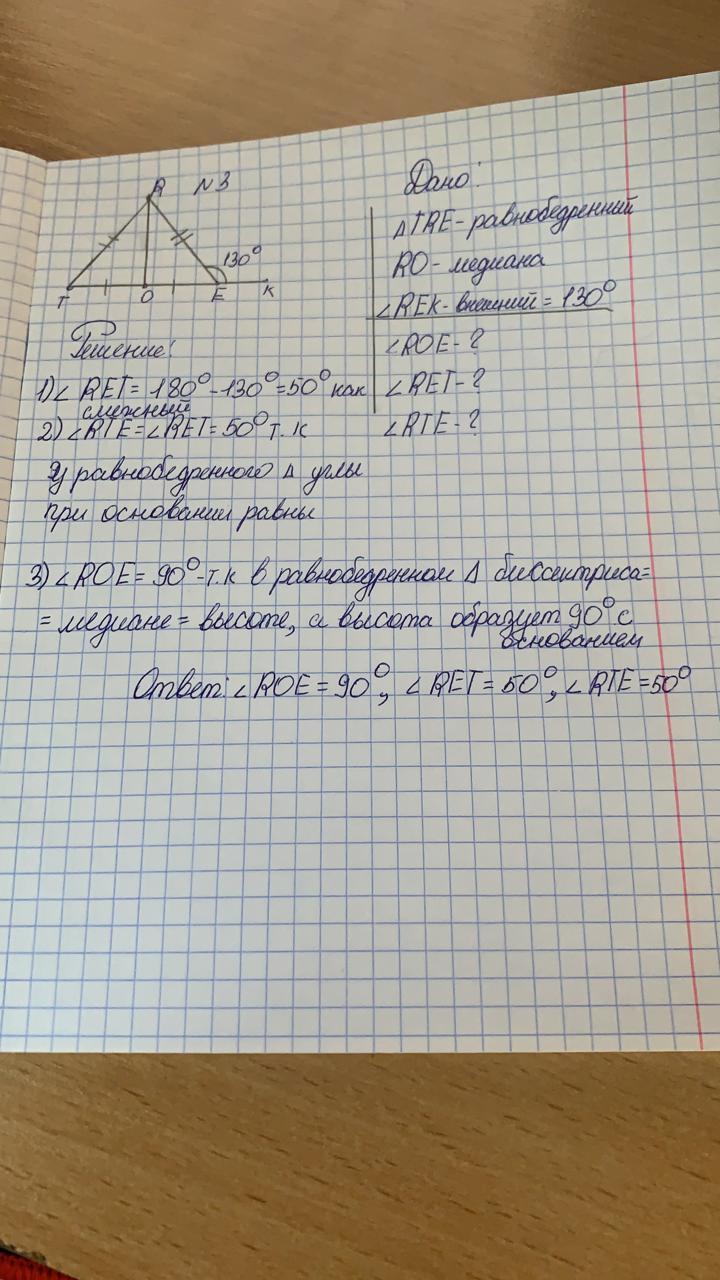 R N3
130°
T O E K
Дано:
ΔTRE - равнобедренный
RO - медиана
∠REK - внешний = 130°
∠ROE - ?
∠RET - ?
∠RTE - ?
Решение:
1) ∠ RET = 180° - 130° = 50° как
смежный
2) ∠RTE = ∠RET = 50° т. к
У равнобедренного Δ углы
при основании равны
3) ∠ROE = 90° - т.к в равнобедренном Δ биссектриса =
= медиане = высоте, а высота образует 90° с
основанием
Ответ: ∠ROE = 90°, ∠RET = 50°, ∠RTE = 50°